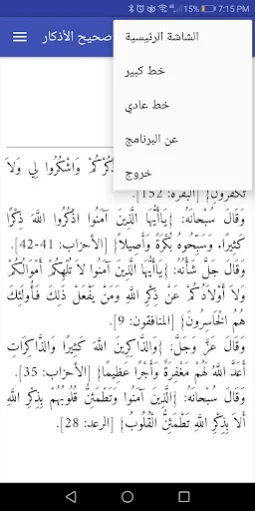 15% 7:15 PM
صحيح الأذكار
الشاشة الرئيسية
خط كبير
خط عادي
عن البرنامج
خروج
ذْكُرْكُمْ وَاشْكُرُوا لِي وَلاَ
تَكْفُرُونِ} [البقرة: 152].
وَقَالَ سُبْحَانَهُ: {يَاأَيُّهَا الَّذِينَ آمَنُوا اذْكُرُوا اللَّهَ ذِكْرًا
كَثِيرًا، وَسَبِّحُوهُ بُكْرَةً وَأَصِيلًا} [الأحزاب: 41-42].
وَقَالَ جَلَّ شَأْنُهُ: {يَاأَيُّهَا الَّذِينَ آمَنُوا لا تُلْهِكُمْ أَمْوَالُكُمْ
وَلا أَوْلادُكُمْ عَنْ ذِكْرِ اللَّهِ وَمَنْ يَفْعَلْ ذَلِكَ فَأُولَئِكَ
هُمُ الْخَاسِرُونَ} [المنافقون: 9].
وَقَالَ عَزَّ وَجَلَّ: {وَالذَّاكِرِينَ اللَّهَ كَثِيرًا وَالذَّاكِرَاتِ
أَعَدَّ اللَّهُ لَهُمْ مَغْفِرَةً وَأَجْرًا عَظِيمًا} [الأحزاب: 35].
وَقَالَ سُبْحَانَهُ: {الَّذِينَ آمَنُوا وَتَطْمَئِنُّ قُلُوبُهُمْ بِذِكْرِ اللَّهِ
أَلاَ بِذِكْرِ اللَّهِ تَطْمَئِنُّ الْقُلُوبُ} [الرعد: 28].